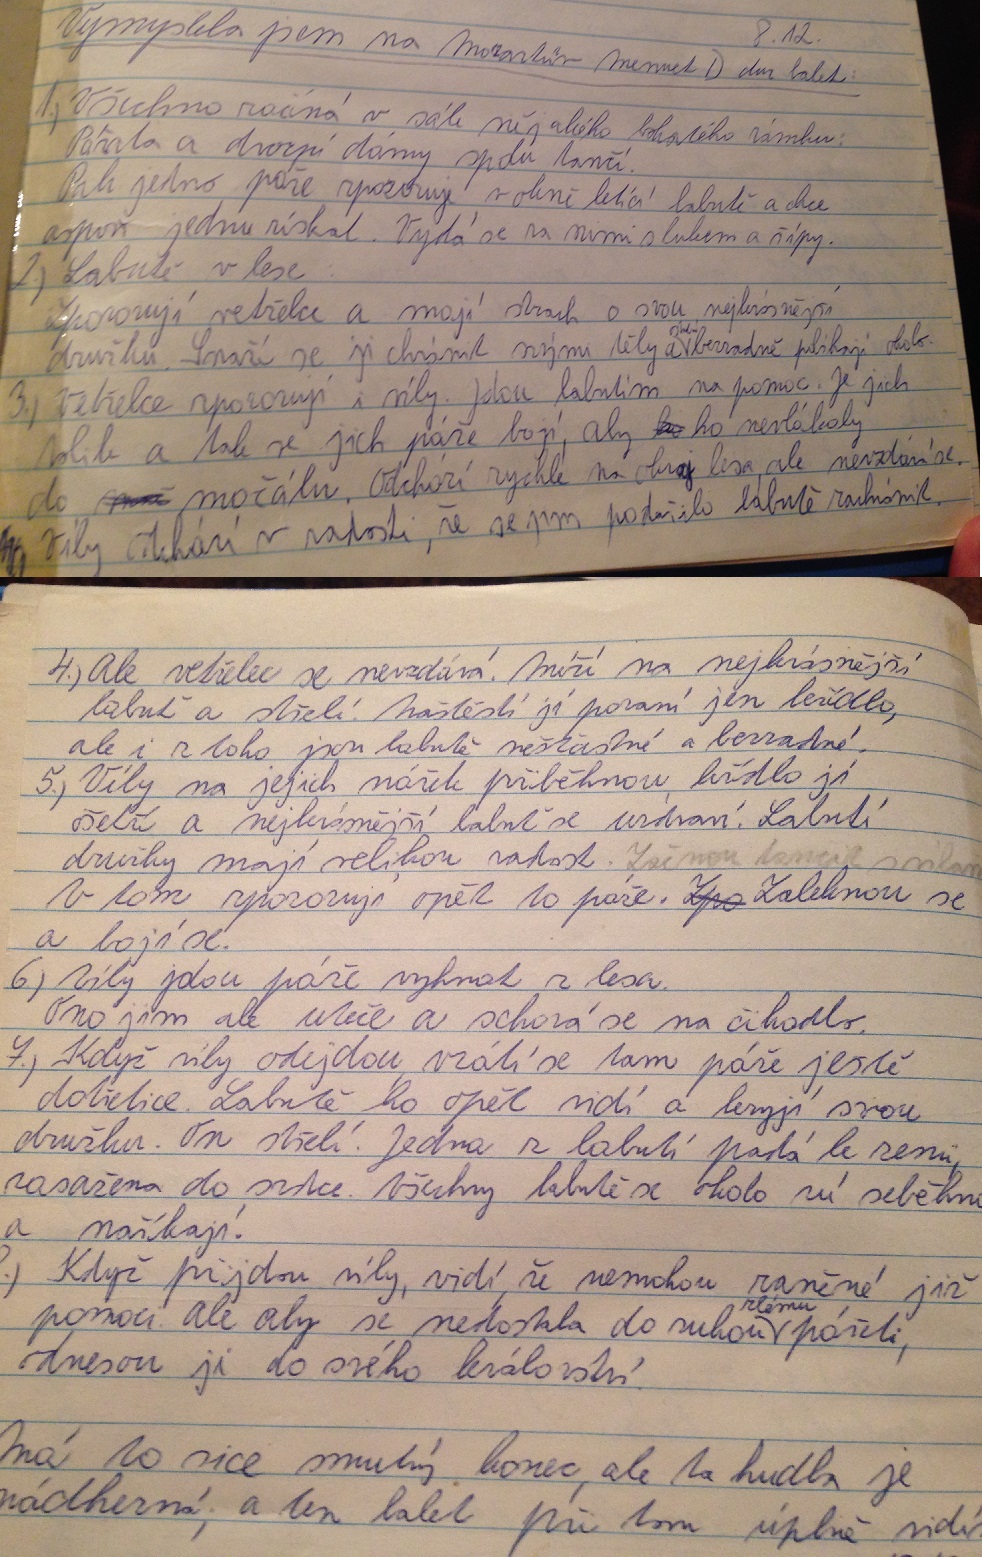 8.12.
Vymyslela jsem na Mozartův menuet D dur balet:
1.) Všechno začíná v sále nějakého bohatého zámku:
Pážata a dvorní dámy spolu tančí.
Pak jedno páže zpozoruje v okně letící labutě a chce
aspoň jednu získat. Vydá se za nimi s lukem a šípy.
2.) Labutě v lese.
Zpozorují vetřelce a mají strach o svou nejkrásnější
družku. Snaží se ji chránit svými těly a bezradně pobíhají okolo.
3.) Vetřelce zpozorují i víly. Jdou labutím na pomoc. Je jich
tolik a tak se jich páže bojí, aby ho nevlákaly
do močálu. Odchází rychle na okraj lesa, ale nevzdává se.
Víly odchází v radosti, že se jim podařilo labutě zachránit.
4.) Ale vetřelec se nevzdává. Míří na nejkrásnější
labuť a střelí. Naštěstí jí poraní jen křídlo,
ale i z toho jsou labutě nešťastné a bezradné.
5.) Víly na jejich nářek přiběhnou, křídlo jí
ošetří a nejkrásnější labuť se uzdraví. Labutí
družky mají velikou radost. Začnou tancovat s vílami
V tom zpozorují opět to páže. Zpo Zaleknou se
a bojí se.
6.) Víly jdou páže vyhnat z lesa.
Ono jim ale uteče a schová se na čihadlo.
7.) Když víly odejdou, vrátí se tam páže ještě
dotěrněji. Labutě ho opět vidí a kryjí svou
družku. On střelí. Jedna z labutí padá k zemi,
zasažena do srdce. Všechny labutě se okolo ní seběhnou
a naříkají.
8.) Když přijdou víly, vidí, že nemohou raněné již
pomoci. Ale aby se nedostala do rukou zlému pážeti,
odnesou ji do svého království.
Má to sice smutný konec, ale ta hudba je
nádherná, a ten balet při tom úplně vidíš